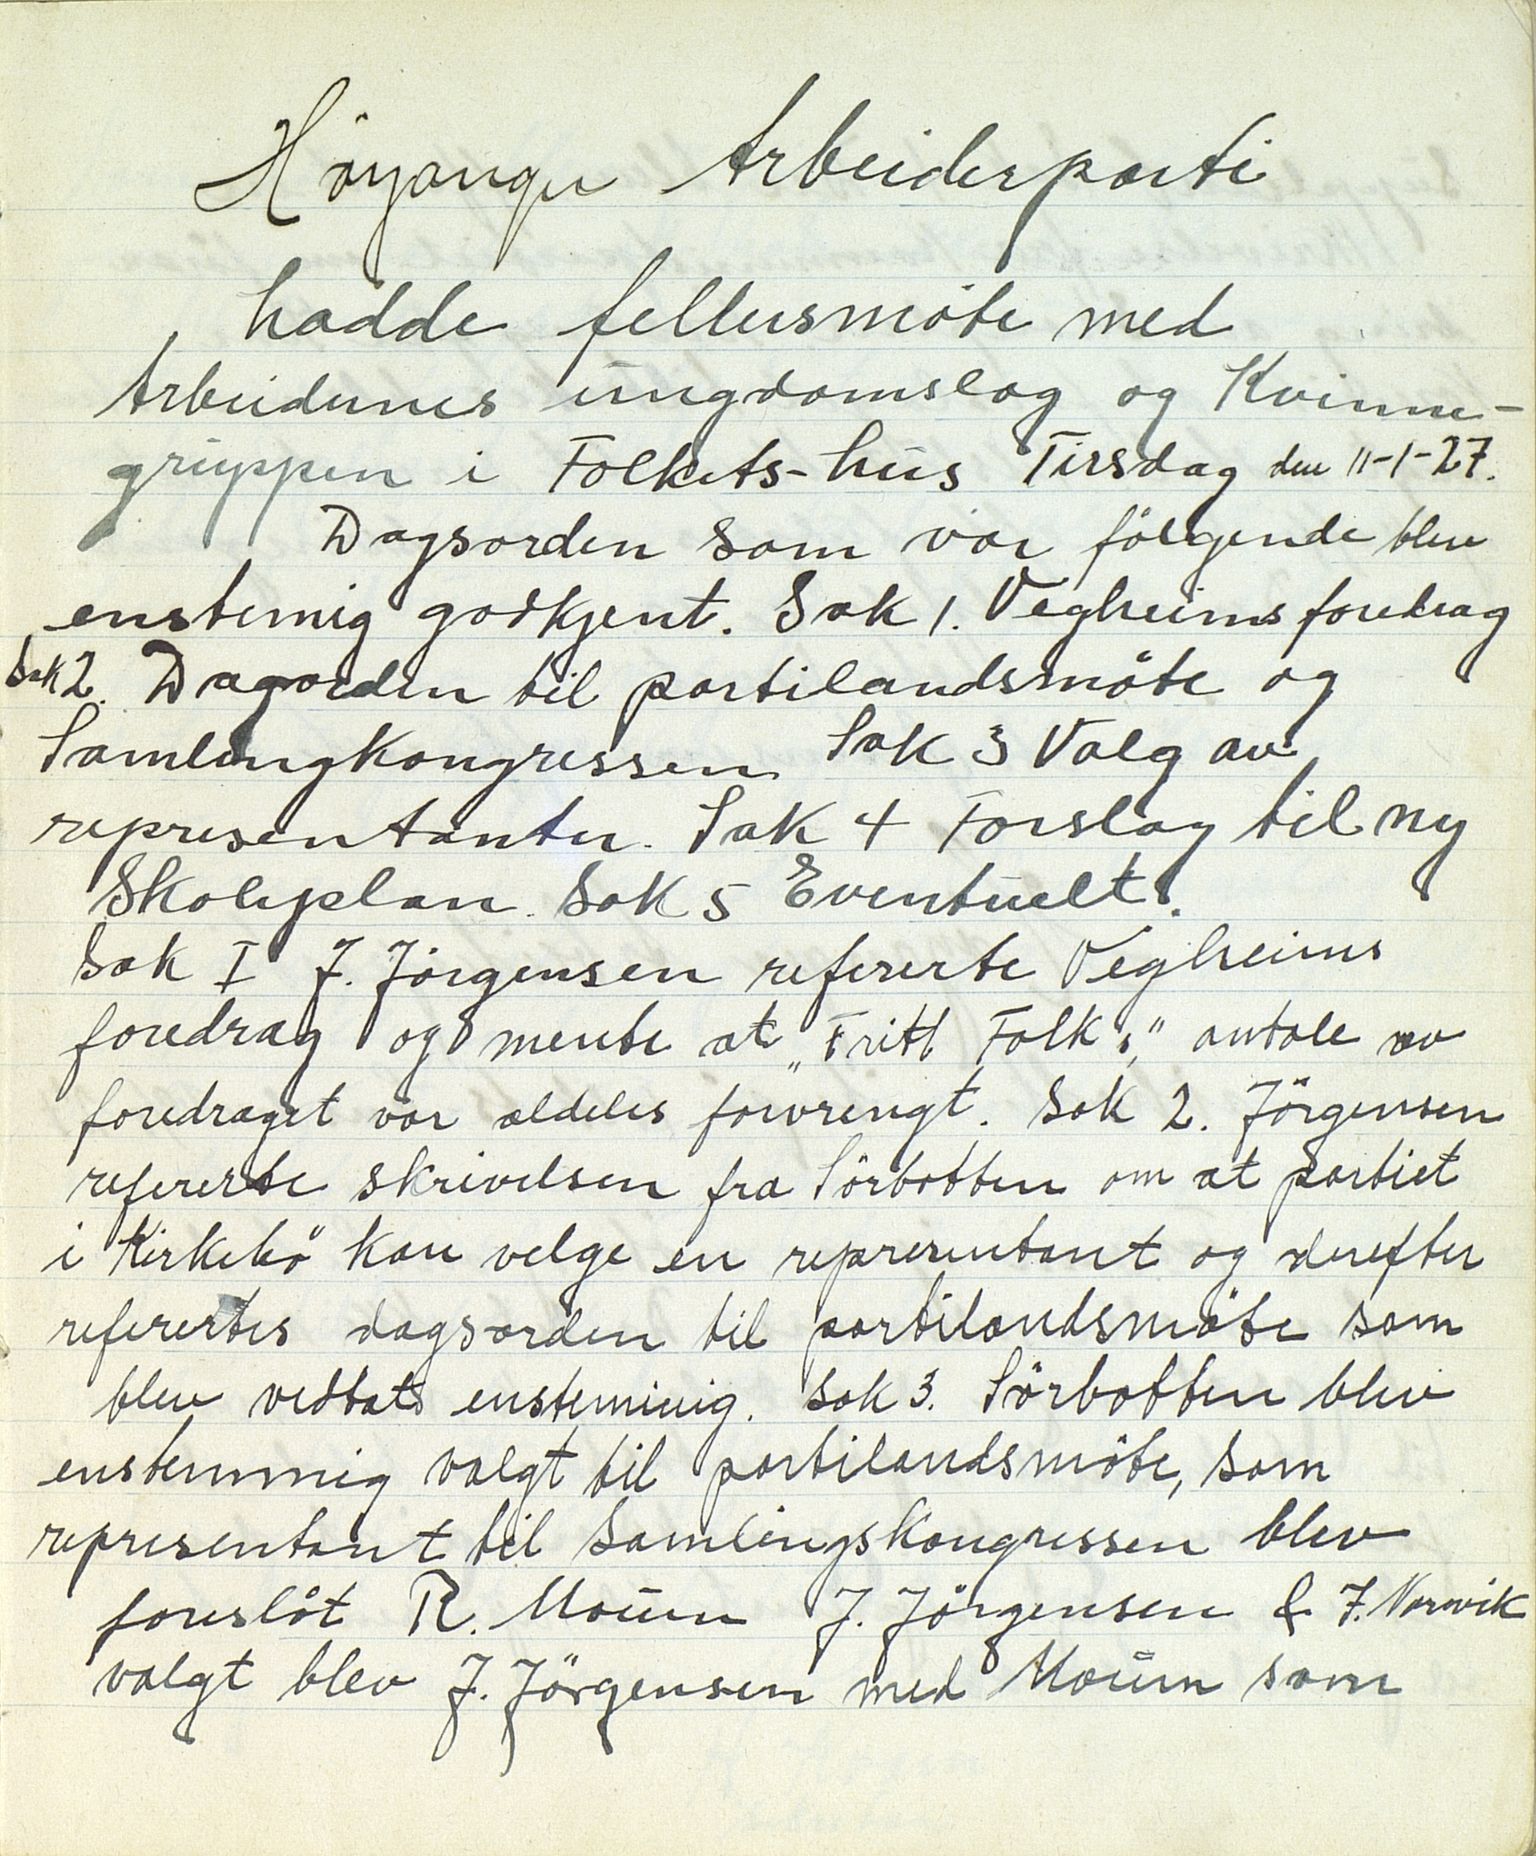 Höyanger Arbeiderparti
hadde fellesmöte med
Arbeidernes ungdomslag og Kvinne-
gruppen i Folkets-hus Tirsdag den 11-1-27.
Dagsorden som var fölgende blev
enstemig godkjent. Sak 1. Vegheims foredrag
Sak 2. Dagorden til partilandsmöte og
Samlingkongressen Sak 3 Valg av
representanter. Sak 4 Forslag til ny
Skoleplan. Sak 5 Eventuelt.
Sak I J. Jörgensen refererte Vegheims
foredrag og mente at „Fritt Folk's" avtale av
foredraget var aldeles forvrengt. Sak 2. Jörgensen
refererte skrivelsen fra Sörbotten om at partiet
i Kirkebö kan velge en representant og derefter
refertes dagsorden til partilandsmöte som
blev vedtat enstemmig. Sak 3. Sörbotten blev
enstemmig valgt til partilandsmöte, som
representant til Samlingskongressen blev
foreslåt R. Moum J. Jörgensen & F. Norvik
valgt blev J. Jörgensen med Moum som